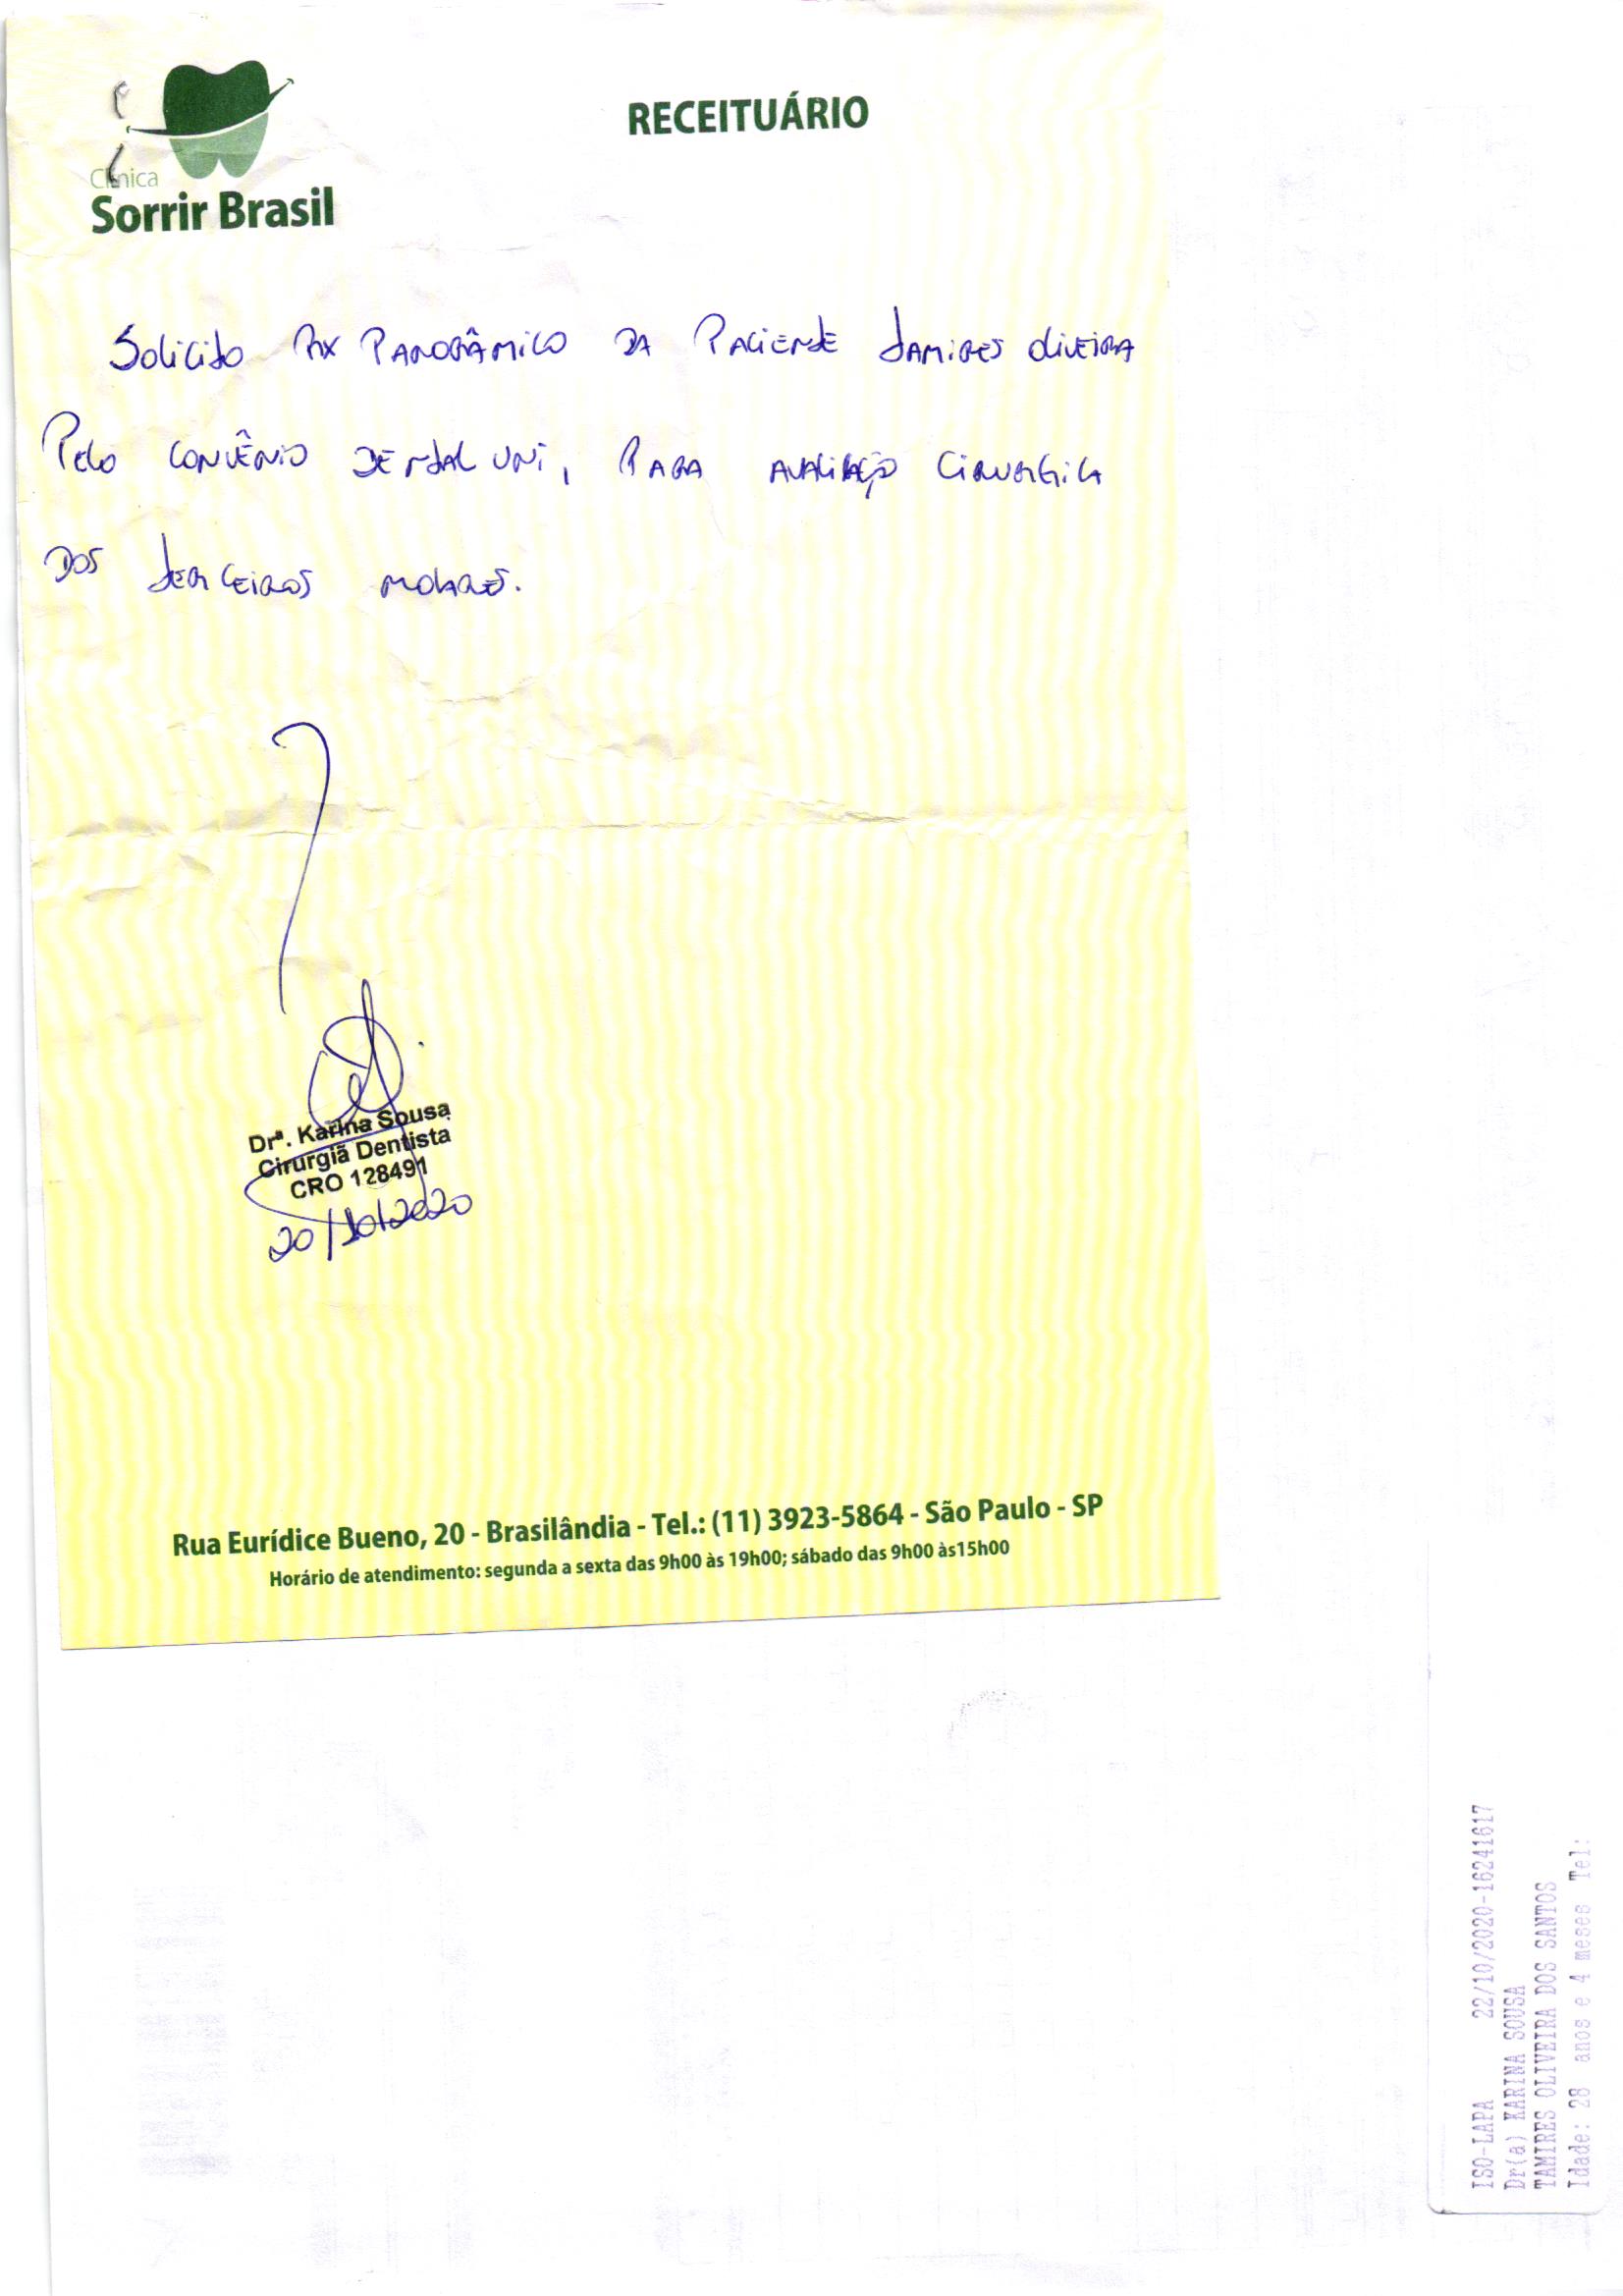 RECEITUÁRIO
Clínica
Sorrir Brasil
Solicito RX Panorâmico da Paciente Tamires Oliveira
Pelo Convênio Dental Uni, Para avaliação Cirurgica
dos terceiros molares.
Drª. Karina Sousa
Cirurgiã Dentista
CRO 128491
20/10/2020
Rua Eurídice Bueno, 20 - Brasilândia - Tel.: (11) 3923-5864 - São Paulo - SP
Horário de atendimento: segunda a sexta das 9h00 às 19h00; sábado das 9h00 às15h00
ISO-LAPA 22/10/2020-16241617
Dr(a) KARINA SOUSA
TAMIRES OLIVEIRA DOS SANTOS
Idade: 28 anos e 4 meses Tel: